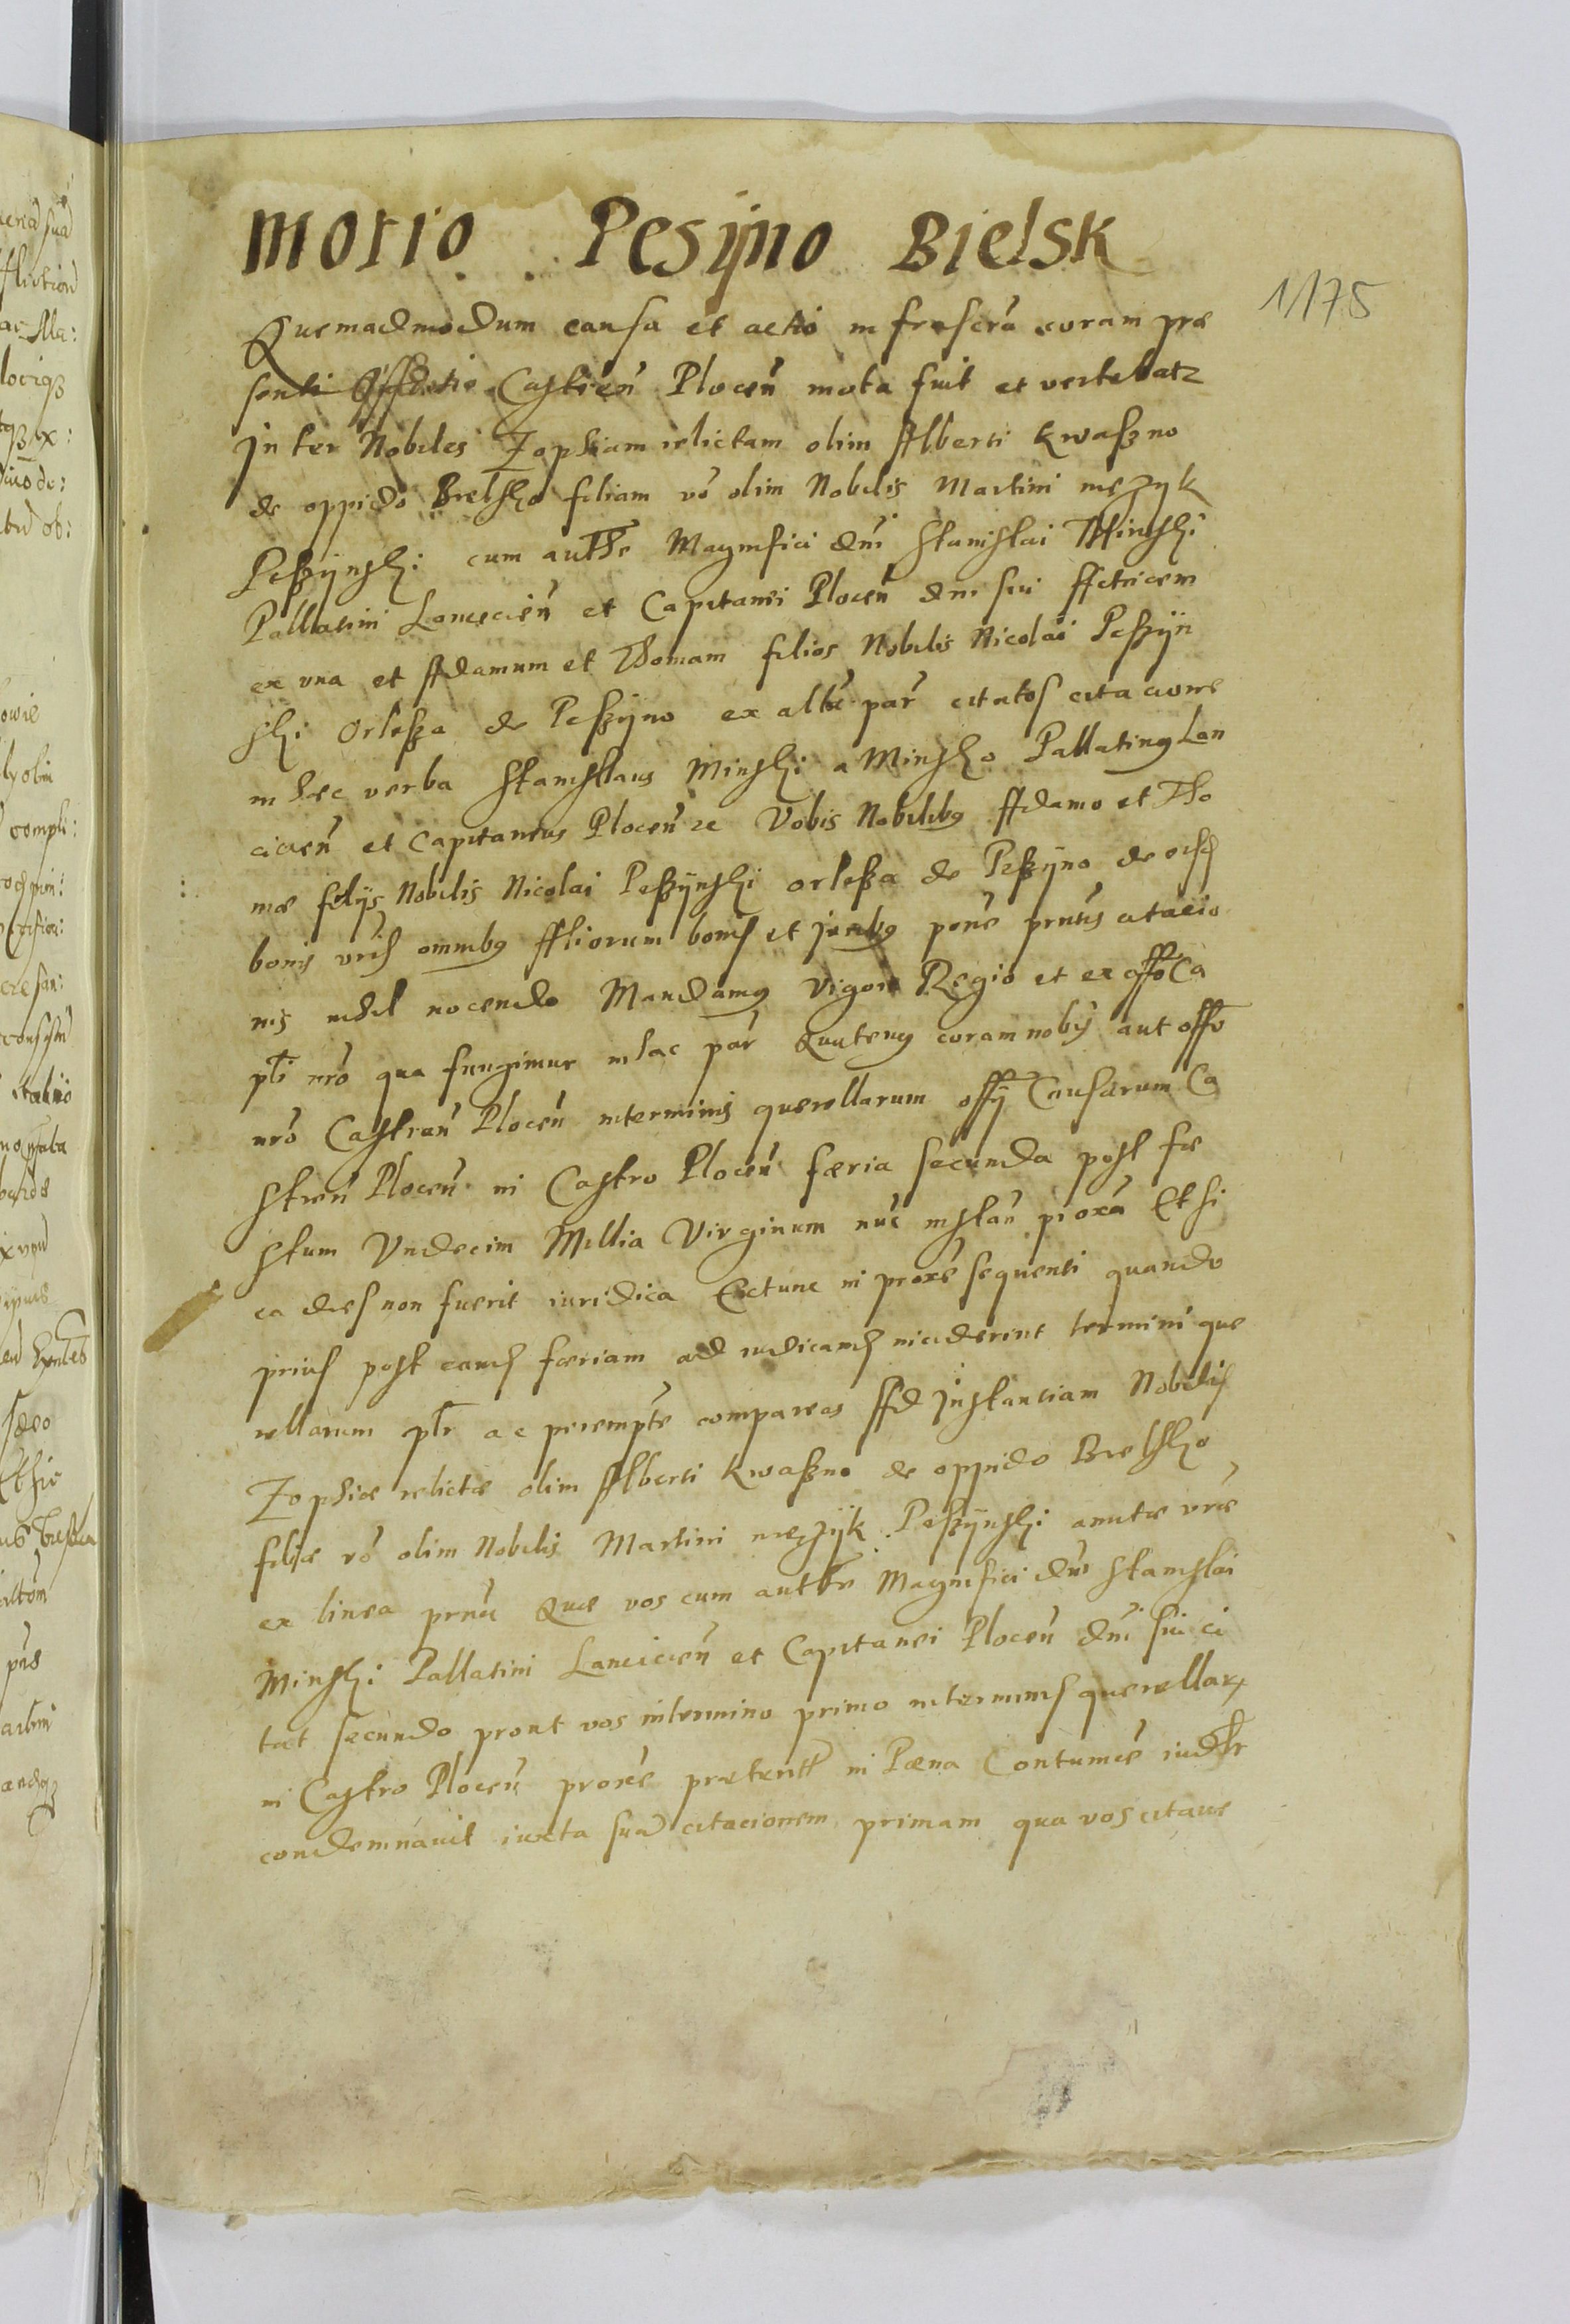 Motio Pesÿno Bielsk
1175
Quemadmodum causa et actio infrascrã coram præ
senti Officio Castreñ Ploceñ mota fuit et vertebatr
Inter Nobiles Zophiam relictam olim Alberti Kwaßno
de oppido Bielsko filiam võ olim Nobilis Martini męzyk
Peßÿnski cum authe Magnifici dni Stanislai Minski
Pallatini Lanccicieñ et Capitanei Ploceñ dni sui Actricem
ex una et Adamum et Thomam filios Nobilis Nicolai Peßÿn
ski Orleßa de Peßÿno ex altr par citatos citacione
in hæc verba Stanislaus Minski a Minsko Pallatinus Lan
cicieñ et Capitaneus Ploceñ etc Vobis Nobilibus Adamo et Tho
mæ filÿs Nobilis Nicolai Peßÿnski orleßa de Peßÿno de
bonis vris omnibus Aliorum bonis et juribus pone prntis citacio
nis nihil nocendo Mandamus Vigore Regio et ex offo Ca
pli nro qua fungimur in hac par Quatenus coram nobis aut offo
nro Castreñ Ploceñ in terminis querellarum offÿ Causarum Ca
streñ Ploceñ in Castro Ploceñ færia secunda post fæ
stum Undecim Millia Virginum nũc instañ proxã Et si
ea dies non fuerit iuridica Extunc in proxe sequenti quando
prius post eand færiam ad iudicand inciderint termini que
rellarum plr ac perempte compareas Ad Instantiam Nobilis
Zophiæ relictæ olim Alberti Kwaßno de oppido Bielsko
filiæ võ olim Nobilis Martini męzÿk Peßÿnski amitæ vræ
ex linea prnci Quæ vos cum authe Magnifici dni Stanislai
Minski Pallatini Lancicieñ et Capitanei Ploceñ dni sui ci
tat secundo prout vos in termino primo in terminis querellar
in Castro Ploceñ proxe præterit in Pæna Contumæ iudlr
condemnavit iuxta suã citacionem primam qua vos citave